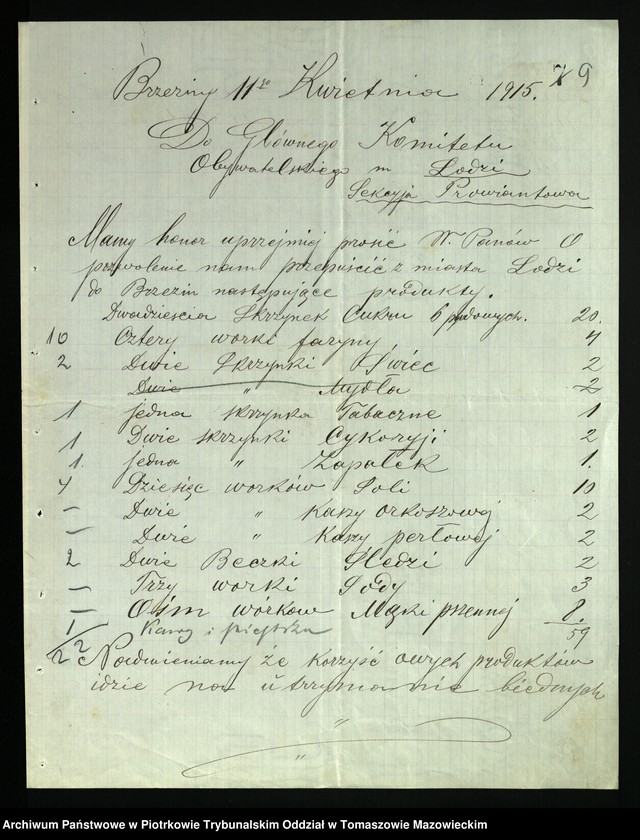 Brzeziny 11go Kwietnia 1915. 9
Do Głównego Komitetu
Obywatelskiego m Łodzi
Sekcyja Prowiantowa
Mamy honor uprzejmiej prosić W. Panów O
pozwolenie nam przepuścić z miasta Łodzi
do Brzezin następujące produkty.
Dwadzieścia Skrzynek Cukru 6 pudowych. 20
10 Cztery worki faryny 4
2 Dwie Skrzynki Swiec 2
Dwie " Mydła 2
1 jedna skrzynka Tabaczne 1
1 Dwie skrzynki Cykoryji 2
1. jedna " Zapałek 1.
4 Dziesięc worków Soli 10
– Dwie " Kaszy orkoszowej 2
– Dwie " Kaszy perłowej 2
2 Dwie Beczki Śledzi 2
– Trzy worki Sody 3
– Ośm worków Mąki pszennej 8.
1 Kawy i 59
22 Nadmieniamy że korzyść owych produktów
idzie na utrzymanie biednych
"
"
Archiwum Państwowe w Piotrkowie Trybunalskim Oddział w Tomaszowie Mazowieckim